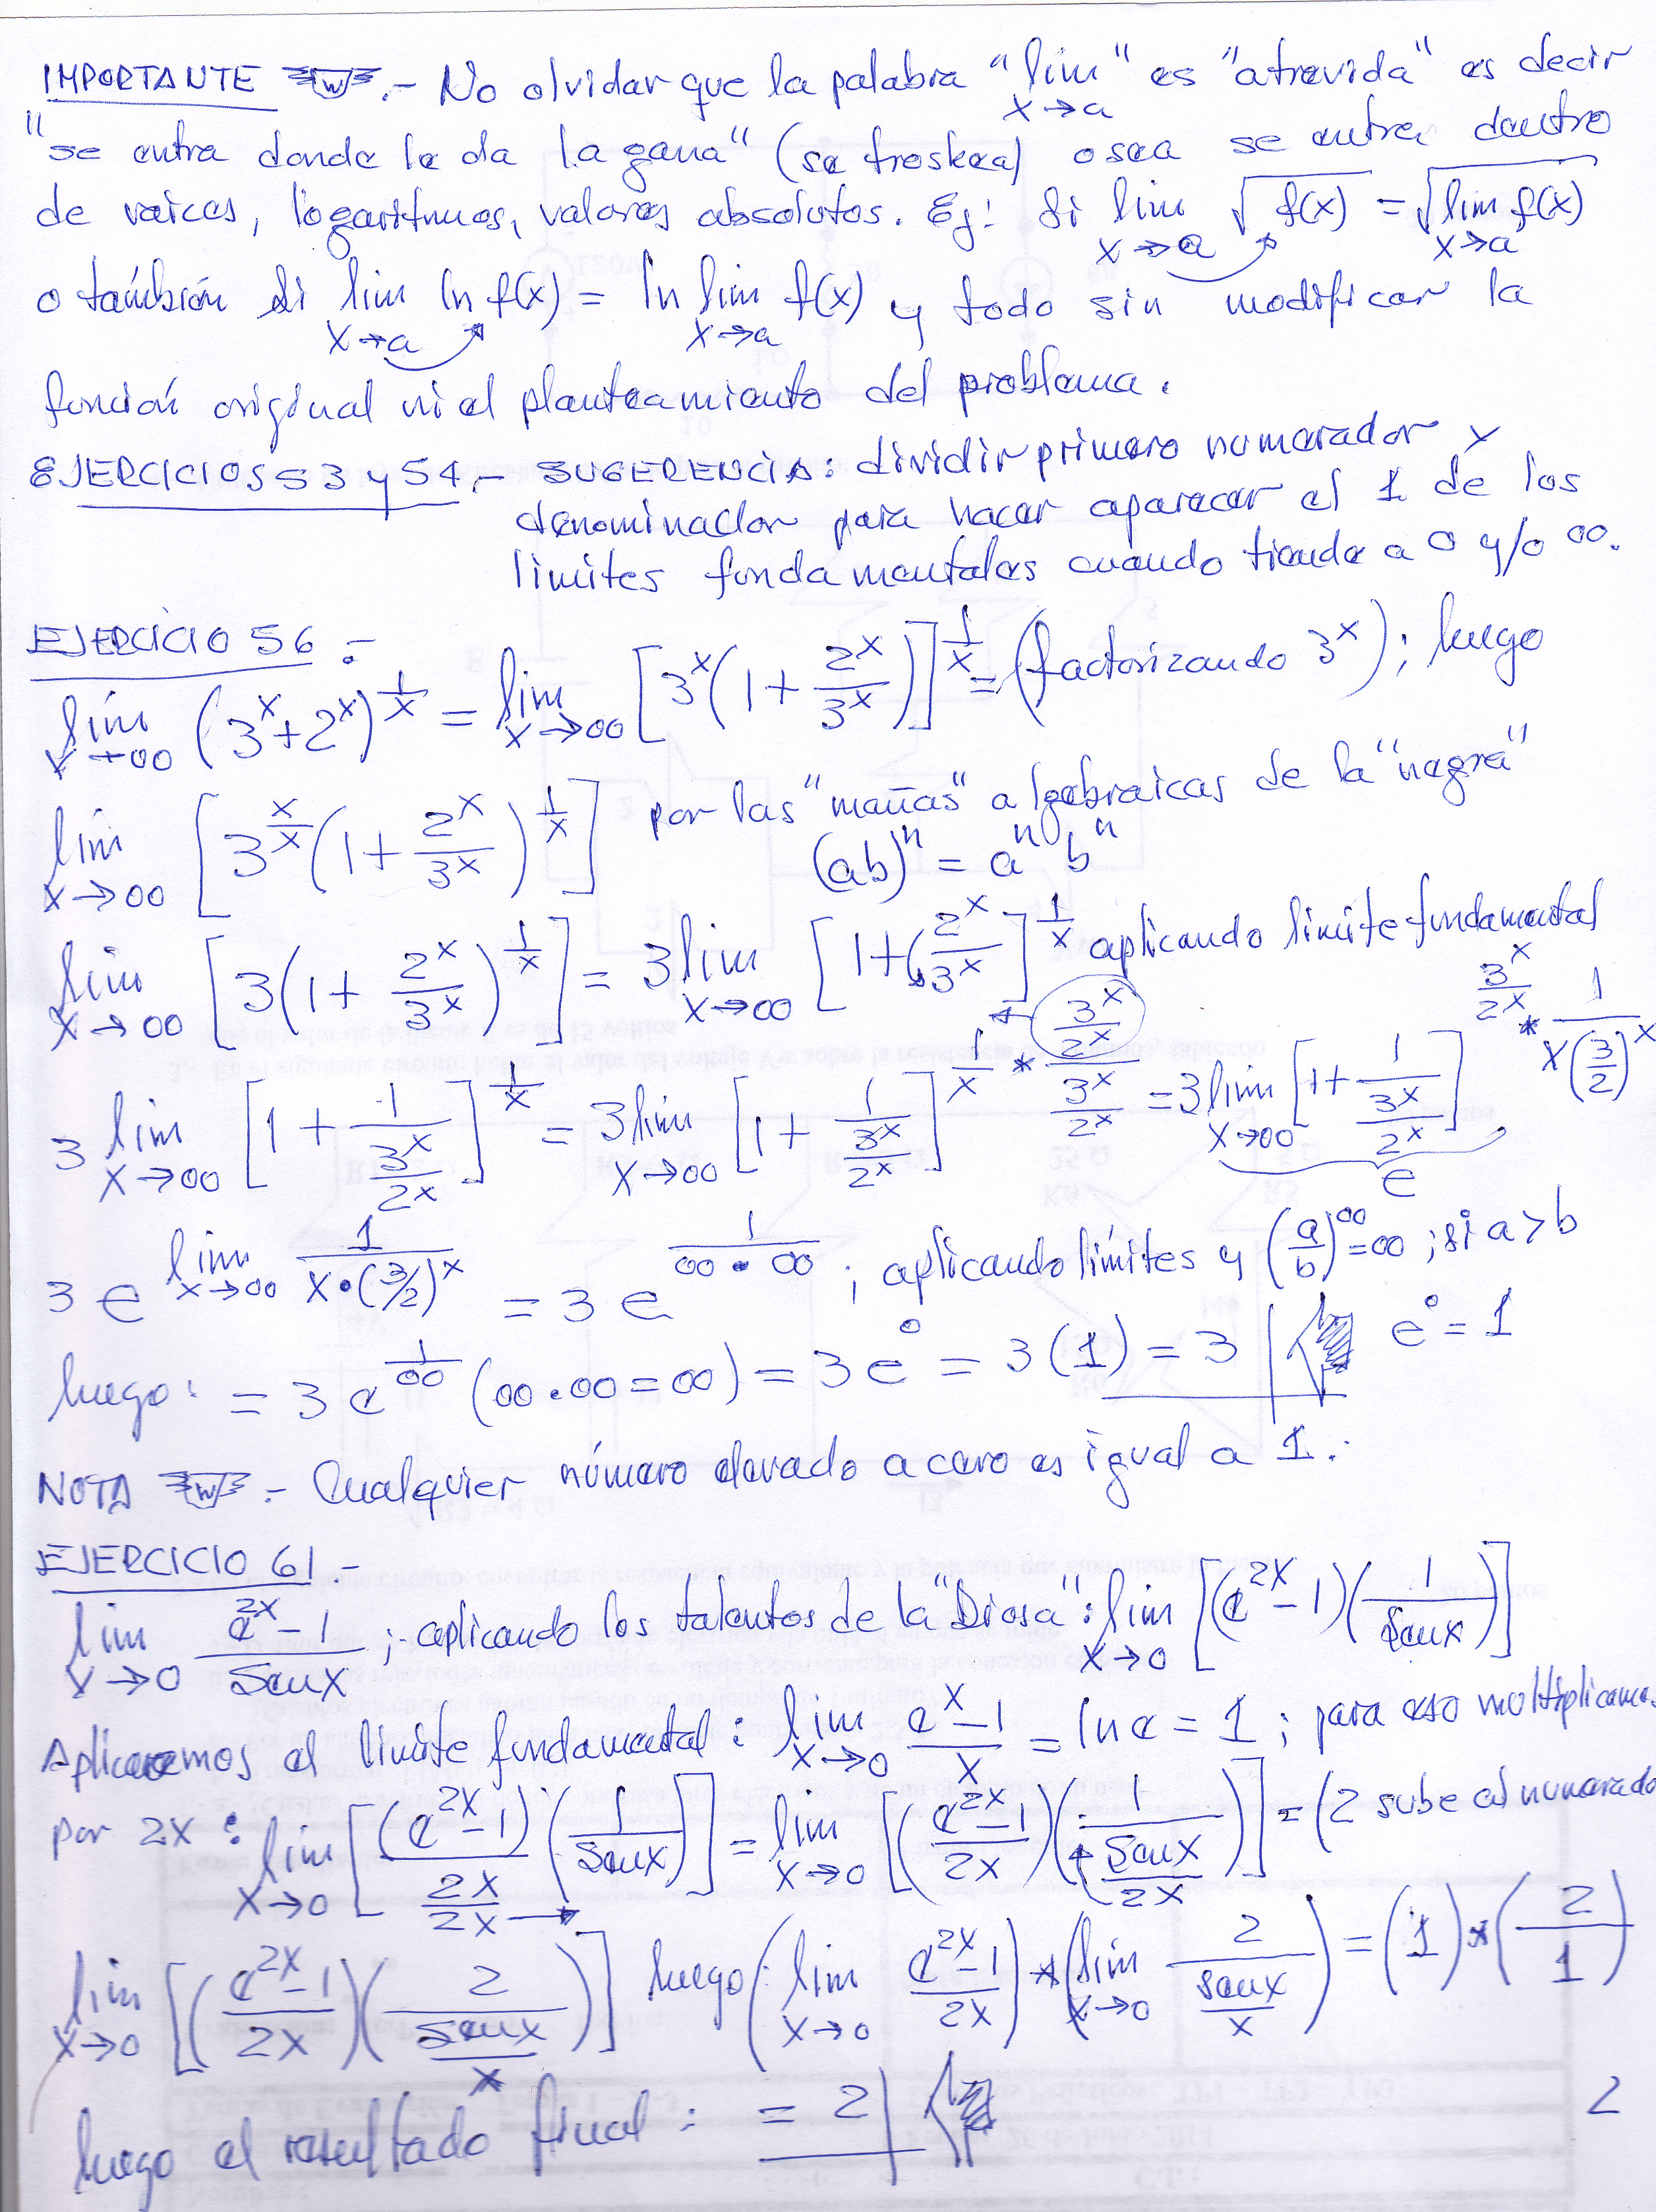 IMPORTANTE W.- No olvidar que la palabra "lim x→a" es "atrevida" es decir
"se entra donde le da la gana" (se freskea) osea se entra dentro
de raices, logaritmos, valores absolutos. Ej: Si lim x→a √f(x) = √lim x→a f(x)
o también si lim x→a ln f(x) = ln lim x→a f(x) y todo sin modificar la
función original ni el planteamiento del problema.
EJERCICIOS 53 y 54.- SUGERENCIA: dividir primero numerador y
denominador para hacer aparecer el 1 de los
limites fundamentales cuando tiende a 0 y/o ∞.
EJERCICIO 56 :-
lím x→∞ (3^x+2^x)^(1/x) = lim x→∞ [3^x(1+2^x/3^x)]^(1/x) = (factorizando 3^x); luego
lim x→∞ [3^(x/x)(1+2^x/3^x)^(1/x)] por las "mañas" algebraicas de la "negra"
(ab)^n = a^n b^n
lim x→∞ [3(1+2^x/3^x)^(1/x)] = 3 lim x→∞ [1+(2^x/3^x]^(1/x) aplicando limite fundamental
3 lim x→∞ [1+1/(3^x/2^x)]^(1/x) = 3 lim x→∞ [1+1/(3^x/2^x)]^(1/x * (3^x/2^x)/(3^x/2^x)) = 3 lim x→∞ [1+1/(3^x/2^x)]^(3^x/2^x * 1/(x(3/2)^x))
e
3 e^(lim x→∞ 1/(x•(3/2)^x)) = 3 e^(1/(∞•∞)) ; aplicando límites y (a/b)^∞=∞ ; si a>b
luego: = 3 e^(1/∞) (∞•∞=∞) = 3 e^0 = 3(1) = 3 e^0 = 1
NOTA W.- Cualquier número elevado a cero es igual a 1.
EJERCICIO 61.-
lim x→0 (e^2x-1)/senx ; aplicando los talentos de la "Diosa": lim x→0 [(e^2x-1)(1/senx)]
Aplicaremos el limite fundamental: lim x→0 (e^x-1)/x = ln e = 1 ; para eso multiplicamos
por 2x : lim x→0 [(e^2x-1)/(2x/2x) (1/senx)] = lim x→0 [((e^2x-1)/2x)(1/(senx/2x))] = (2 sube al numerado
lim x→0 [((e^2x-1)/2x)(2/(senx/x))] luego: (lim x→0 (e^2x-1)/2x) * (lim x→0 2/(senx/x)) = (1)*(2/1)
luego el resultado final : = 2
2